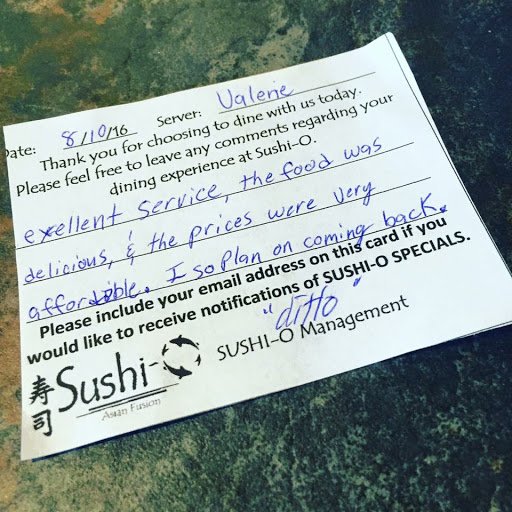 Date: 8/10/16 Server: Valerie
Thank you for choosing to dine with us today.
Please feel free to leave any comments regarding your
dining experience at Sushi-O.
exellent service, the food was
delicious, & the prices were very
affordable. I so plan on coming back.
Please include your email address on this card if you
would like to receive notifications of SUSHI-O SPECIALS.
"ditto"
SUSHI-O Management
寿司
Sushi-O
Asian Fusion